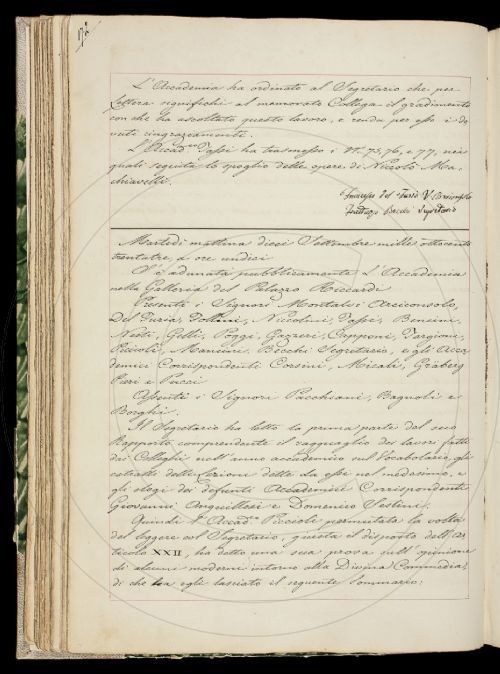 172
L'Accademia ha ordinato al Segretario che per
lettera significhi al memorato Collega il gradimento
con che ha ascoltato questo lavoro, e renda per esso i do,
vuti ringraziamenti.
L'Accad.co Tassi ha trasmesso i N. 75, 76, e 77, nei
quali seguita lo spoglio delle opere di Niccolò Ma,
chiavelli.
Francesco Del Furia V. Arciconsolo
Fruttuoso Becchi Segretario
Martedì mattina dieci Settembre mille ottocento
trentatre, a ore undici
S'è adunata pubblicamente l'Accademia
nella Galleria del Palazzo Riccardi
Presenti i Signori Montalvi Arciconsolo,
Del Furia, Follini, Niccolini, Tassi, Bencini,
Nesti, Gelli, Poggi, Gazzeri, Capponi, Targioni,
Piccioli, Mancini, Becchi Segretario, e gli Acca,
demici Corrispondenti Corsini, Micali, Gräberg
Pieri e Pucci
Assenti i Signori Pacchiani, Bagnoli e
Borghi.
Il Segretario ha letto la prima parte del suo
Rapporto comprendente il ragguaglio dei lavori fatti
dai Colleghi nell'anno accademico sul Vocabolario, gli
estratti delle lezioni dette da essi nel medesimo, e
gli elogi dei defunti Accademici Corrispondenti
Giovanni Anguillesi e Domenico Sestini.
Quindi l'Accad. Piccioli permutata la volta
del leggere col Segretario, giusta il disposto dell'Ar,
ticolo XXII, ha detto una sua prosa sull'opinione
di alcuni moderni intorno alla Divina Commedia,
di che ha egli lasciato il seguente Sommario: